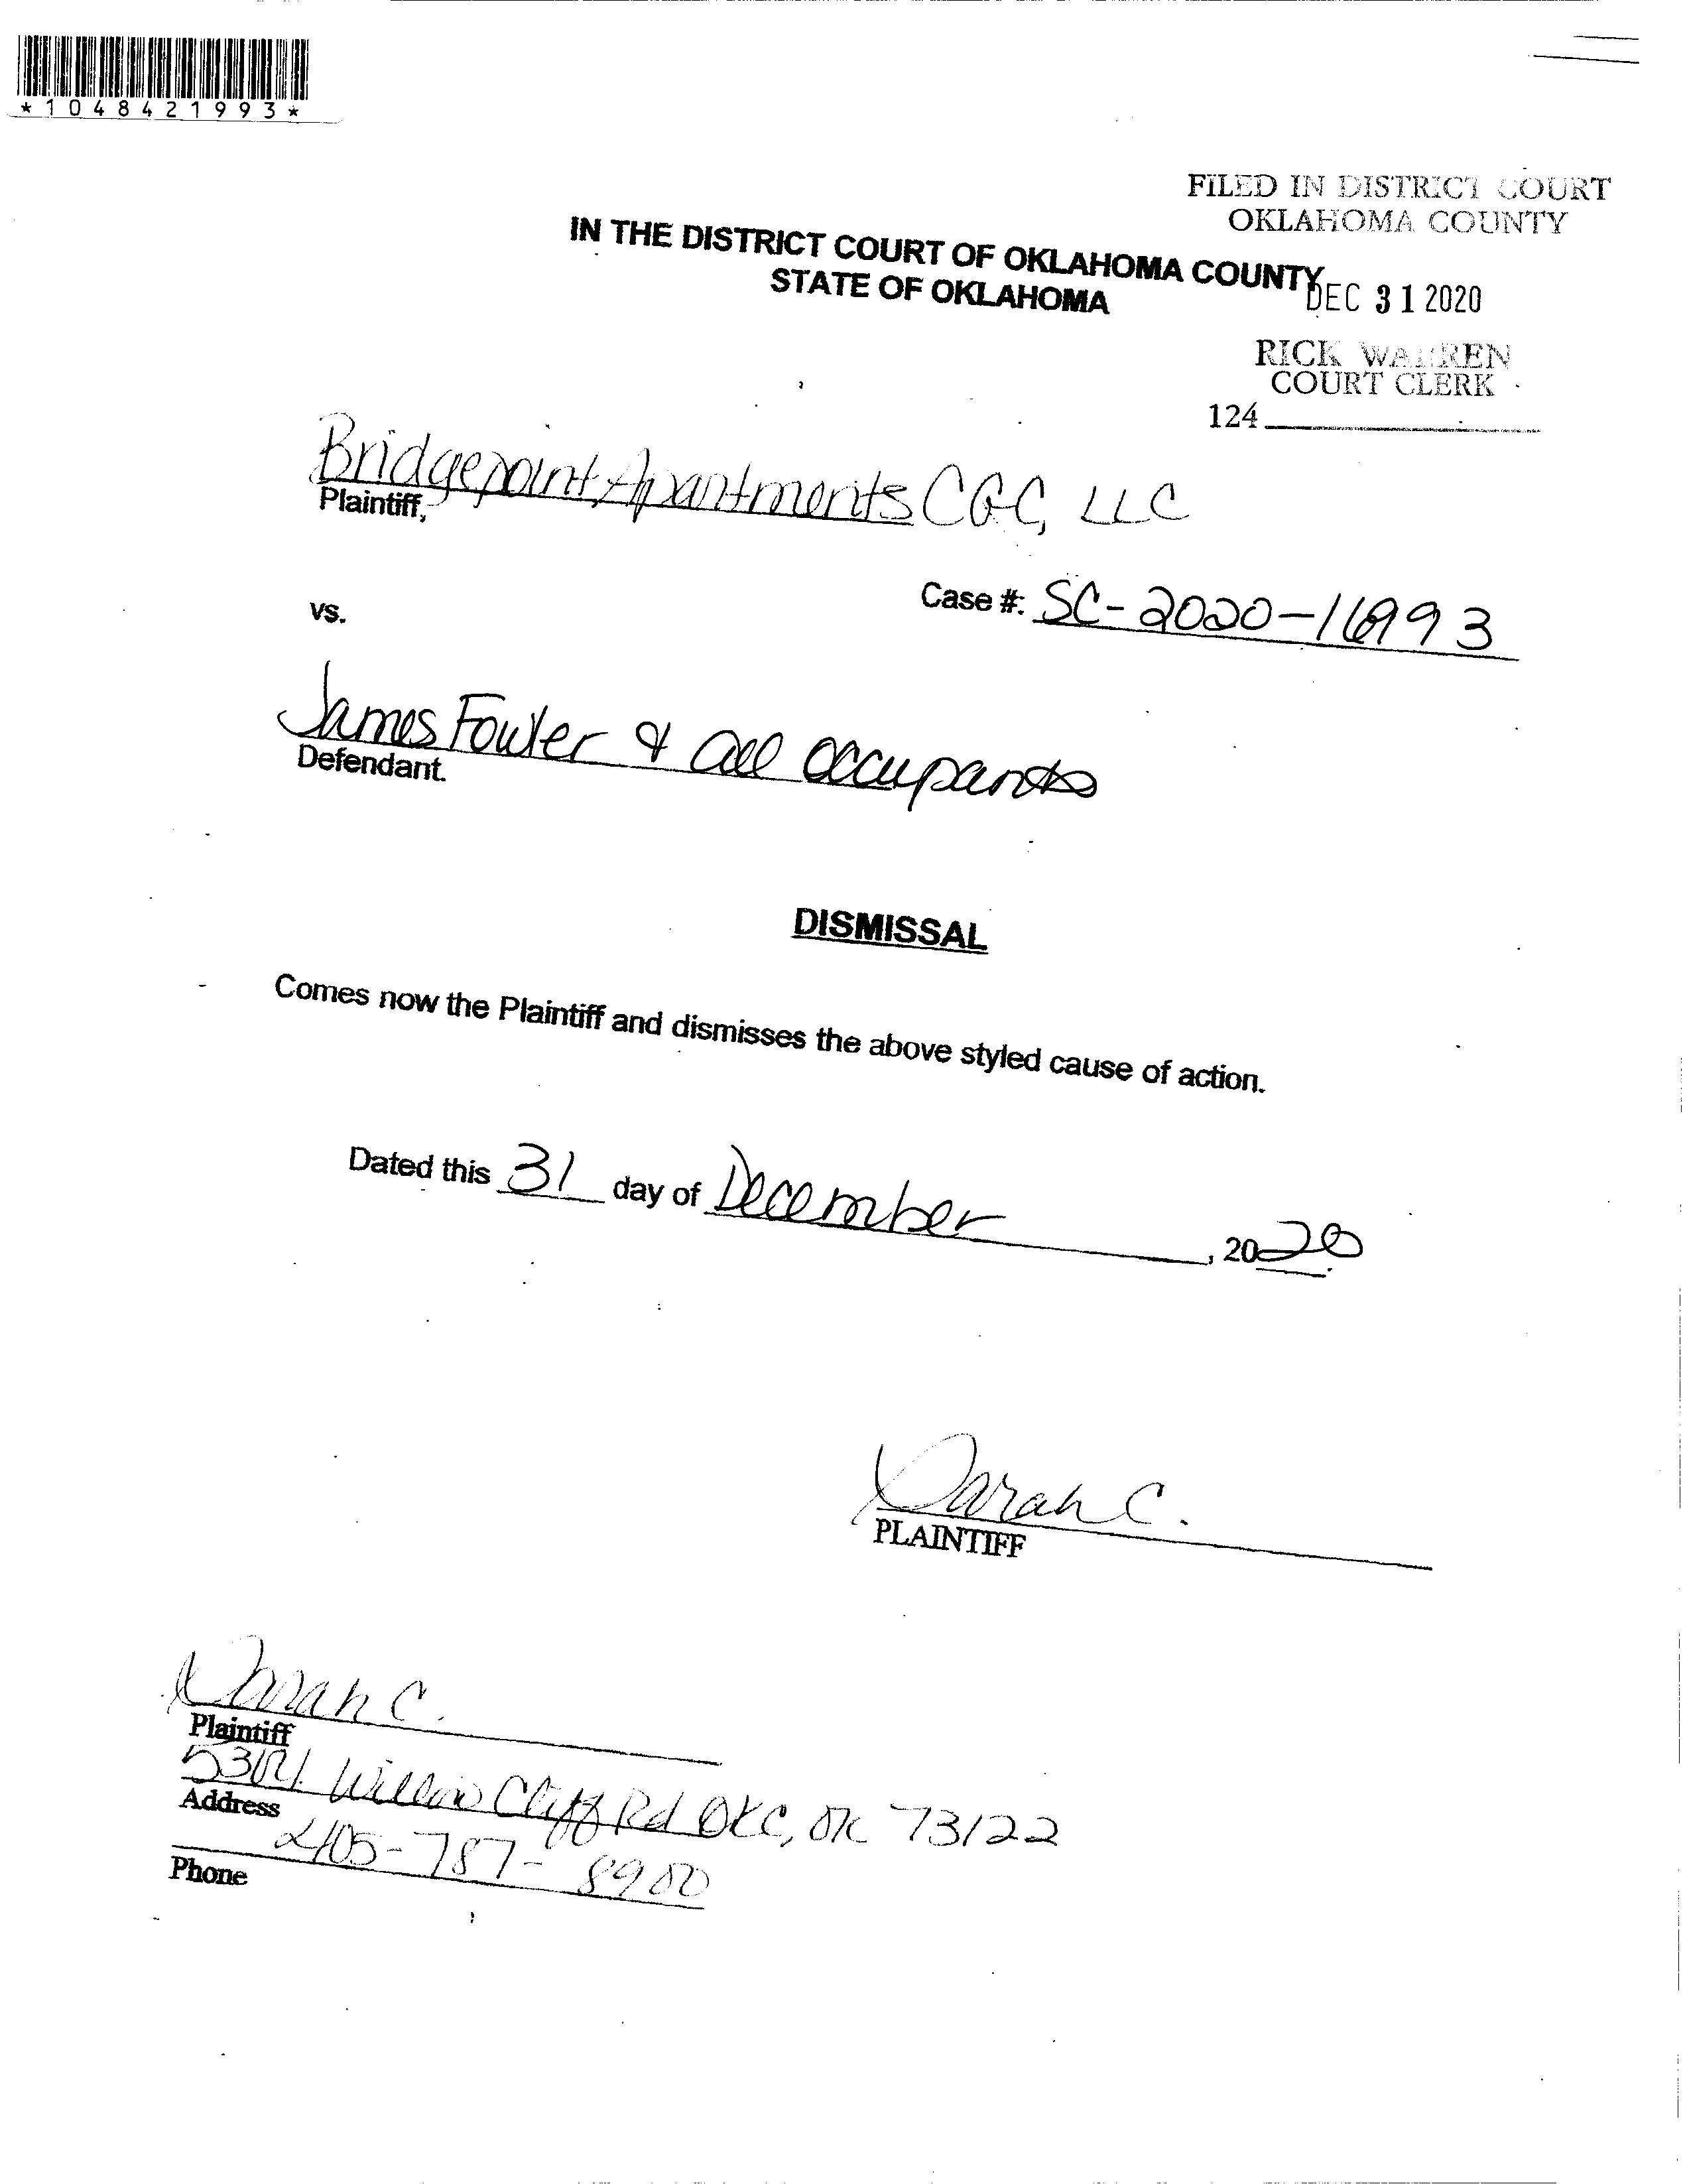 *1048421993*
FILED IN DISTRICT COURT
OKLAHOMA COUNTY
IN THE DISTRICT COURT OF OKLAHOMA COUNTY
STATE OF OKLAHOMA
DEC 31 2020
RICK WARREN
COURT CLERK
124
Bridgepoint Apartments CGC, LLC
Plaintiff,
Case #: SC-2020-16993
vs.
James Fowler & all occupants
Defendant.
DISMISSAL
Comes now the Plaintiff and dismisses the above styled cause of action.
Dated this 31 day of December, 2020
Sarah C.
PLAINTIFF
Sarah C.
Plaintiff
Willow Cliff Rd OKC, OK 73122
Address
405-787-8900
Phone